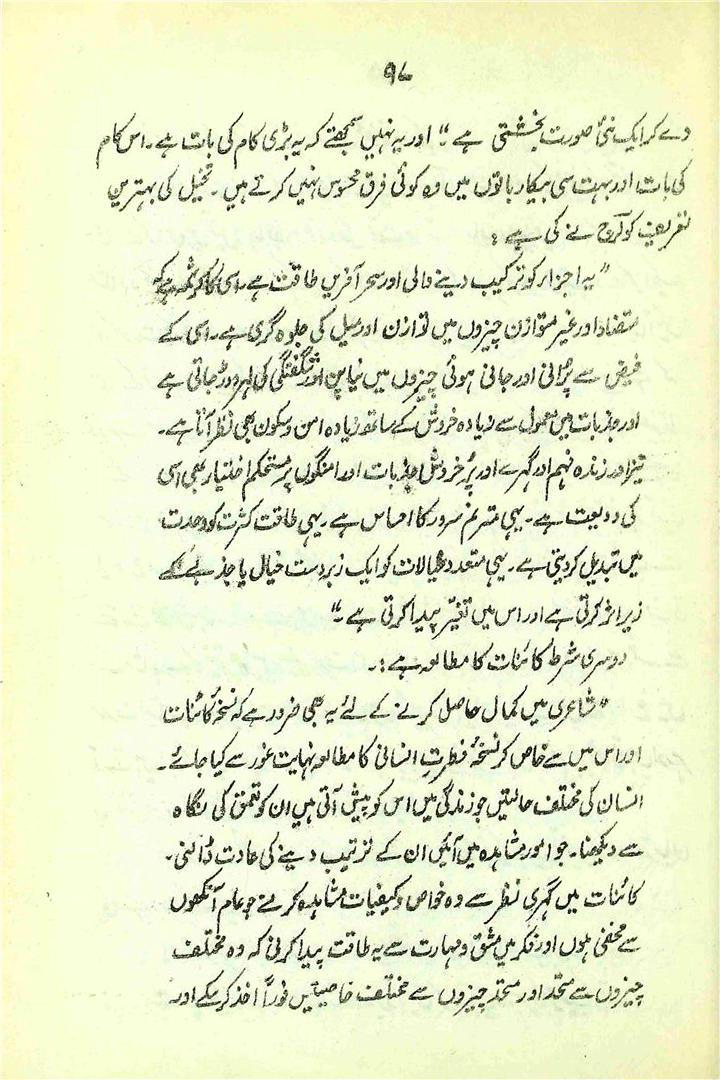 ۹۷
دے کر ایک نئی صورت بخشتی ہے۔" اور یہ نہیں سمجھتے کہ یہ بڑی کام کی بات ہے۔ اس کام
کی بات اور بہت سی بیکار باتوں میں وہ کوئی فرق محسوس نہیں کرتے ہیں۔ تخیل کی بہترین
تعریف کولرج نے کی ہے:
"یہ اجزاء کو ترکیب دینے والی اور سحر آفریں طاقت ہے۔ اسی کا کرشمہ ہے کہ
متضاد اور غیر متوازن چیزوں میں توازن اور میل کی جلوہ گری ہے۔ اسی کے
فیض سے پرانی اور جانی ہوئی چیزوں میں نیا پن اور شگفتگی کی لہر دوڑ جاتی ہے
اور جذبات میں معمول سے زیادہ خروش کے ساتھ زیادہ امن و سکون بھی نظر آتا ہے۔
تیز اور زندہ فہم اور گہرے اور پر خروش جذبات اور امنگوں پر مستحکم اختیار بھی اسی
کی ودیعت ہے۔ یہی مترنم سرور کا احساس ہے۔ یہی طاقت کثرت کو وحدت
میں تبدیل کر دیتی ہے۔ یہی متعدد خیالات کو ایک زبردست خیال یا جذبے کے
زیر اثر کرتی ہے اور اس میں تغیّر پیدا کرتی ہے۔"
دوسری شرط کائنات کا مطالعہ ہے:۔
"شاعری میں کمال حاصل کرنے کے لئے یہ بھی ضرور ہے کہ نسخۂ کائنات
اور اس میں سے خاص کر نسخۂ فطرتِ انسانی کا مطالعہ نہایت غور سے کیا جائے۔
انسان کی مختلف حالتیں جو زندگی میں اس کو پیش آتی ہیں ان کو تعمق کی نگاہ
سے دیکھنا۔ جو امور مشاہدہ میں آئیں ان کے ترتیب دینے کی عادت ڈالنی۔
کائنات میں گہری نظر سے وہ خواص و کیفیات مشاہدہ کرنے جو عام آنکھوں
سے مخفی ہوں اور فکر میں مشق و مہارت سے یہ طاقت پیدا کرنی کہ وہ مختلف
چیزوں سے متحد اور متحد چیزوں سے مختلف خاصیتیں فوراً اخذ کر سکے اور